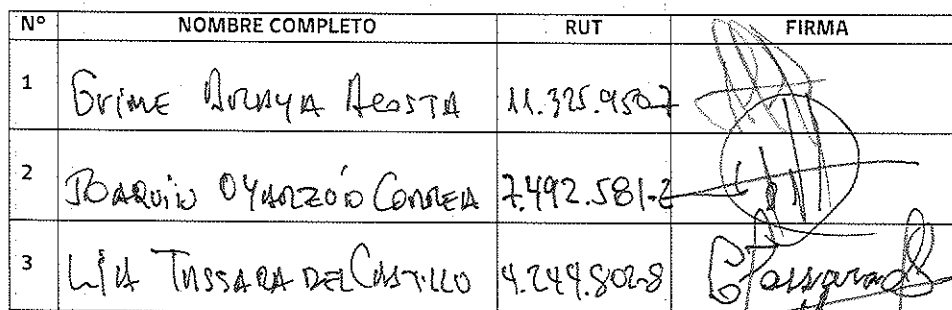 N° NOMBRE COMPLETO RUT FIRMA
1 GRIME ARAYA ACOSTA 11.325.950-7
2 JOAQUIN OYARZÓO CORREA 7.492.581-2
3 LÍA TASSARA DEL CASTILLO 4.249.802-8